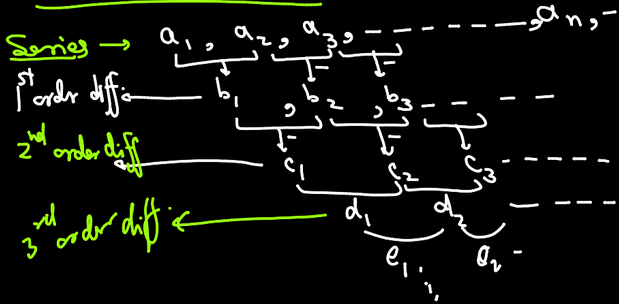 Series → a₁, a₂, a₃, - - - - - - - - —, aₙ, -
1st order diff. ← b₁, b₂, b₃ - - - -
2nd order diff ← c₁ c₂ c₃ - - - - -
3rd order diff. ← d₁ d₂ - - - -
e₁ e₂ -